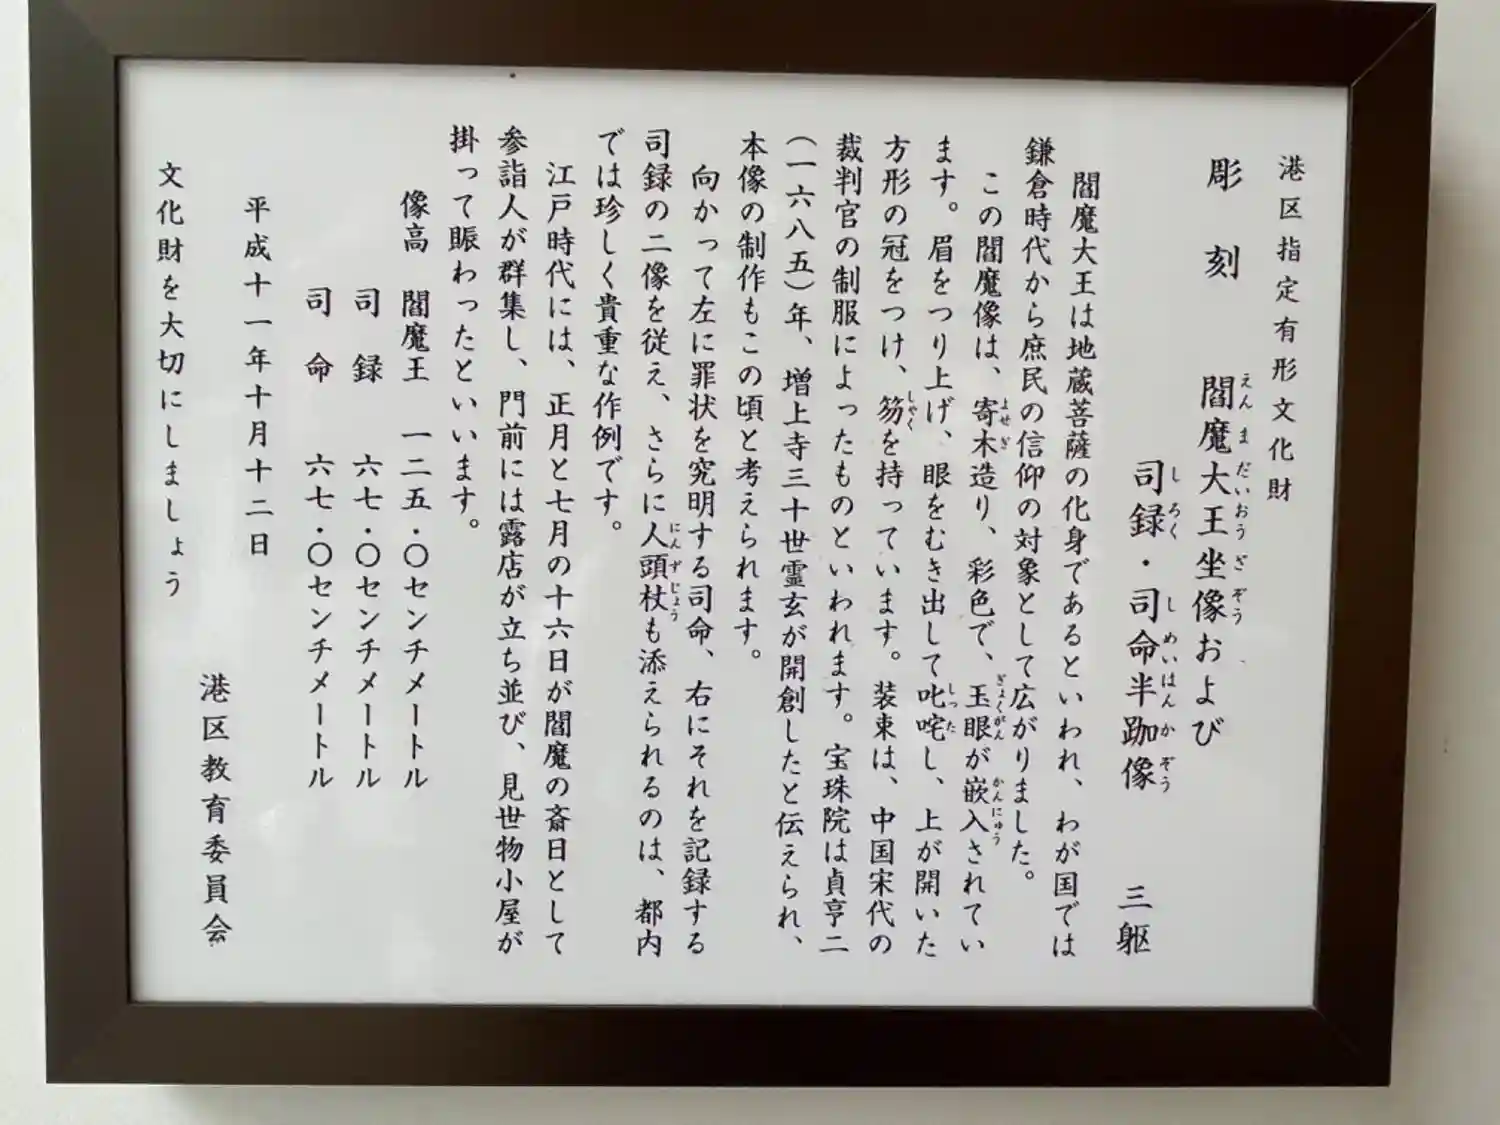 港区指定有形文化財
彫刻 閻魔大王坐像および
司録・司命半跏像 三躯
閻魔大王は地蔵菩薩の化身であるといわれ、わが国では
鎌倉時代から庶民の信仰の対象として広がりました。
この閻魔像は、寄木造り、彩色で、玉眼が嵌入されてい
ます。眉をつり上げ、眼をむき出して叱咤し、上が開いた
方形の冠をつけ、笏を持っています。装束は、中国宋代の
裁判官の制服によったものといわれます。宝珠院は貞亨二
(一六八五)年、増上寺三十世霊玄が開創したと伝えられ、
本像の制作もこの頃と考えられます。
向かって左に罪状を究明する司命、右にそれを記録する
司録の二像を従え、さらに人頭杖も添えられるのは、都内
では珍しく貴重な作例です。
江戸時代には、正月と七月の十六日が閻魔の斎日として
参詣人が群集し、門前には露店が立ち並び、見世物小屋が
掛って賑わったといいます。
像高 閻魔王 一二五・〇センチメートル
司録 六七・〇センチメートル
司命 六七・〇センチメートル
平成十一年十月十二日
港区教育委員会
文化財を大切にしましょう